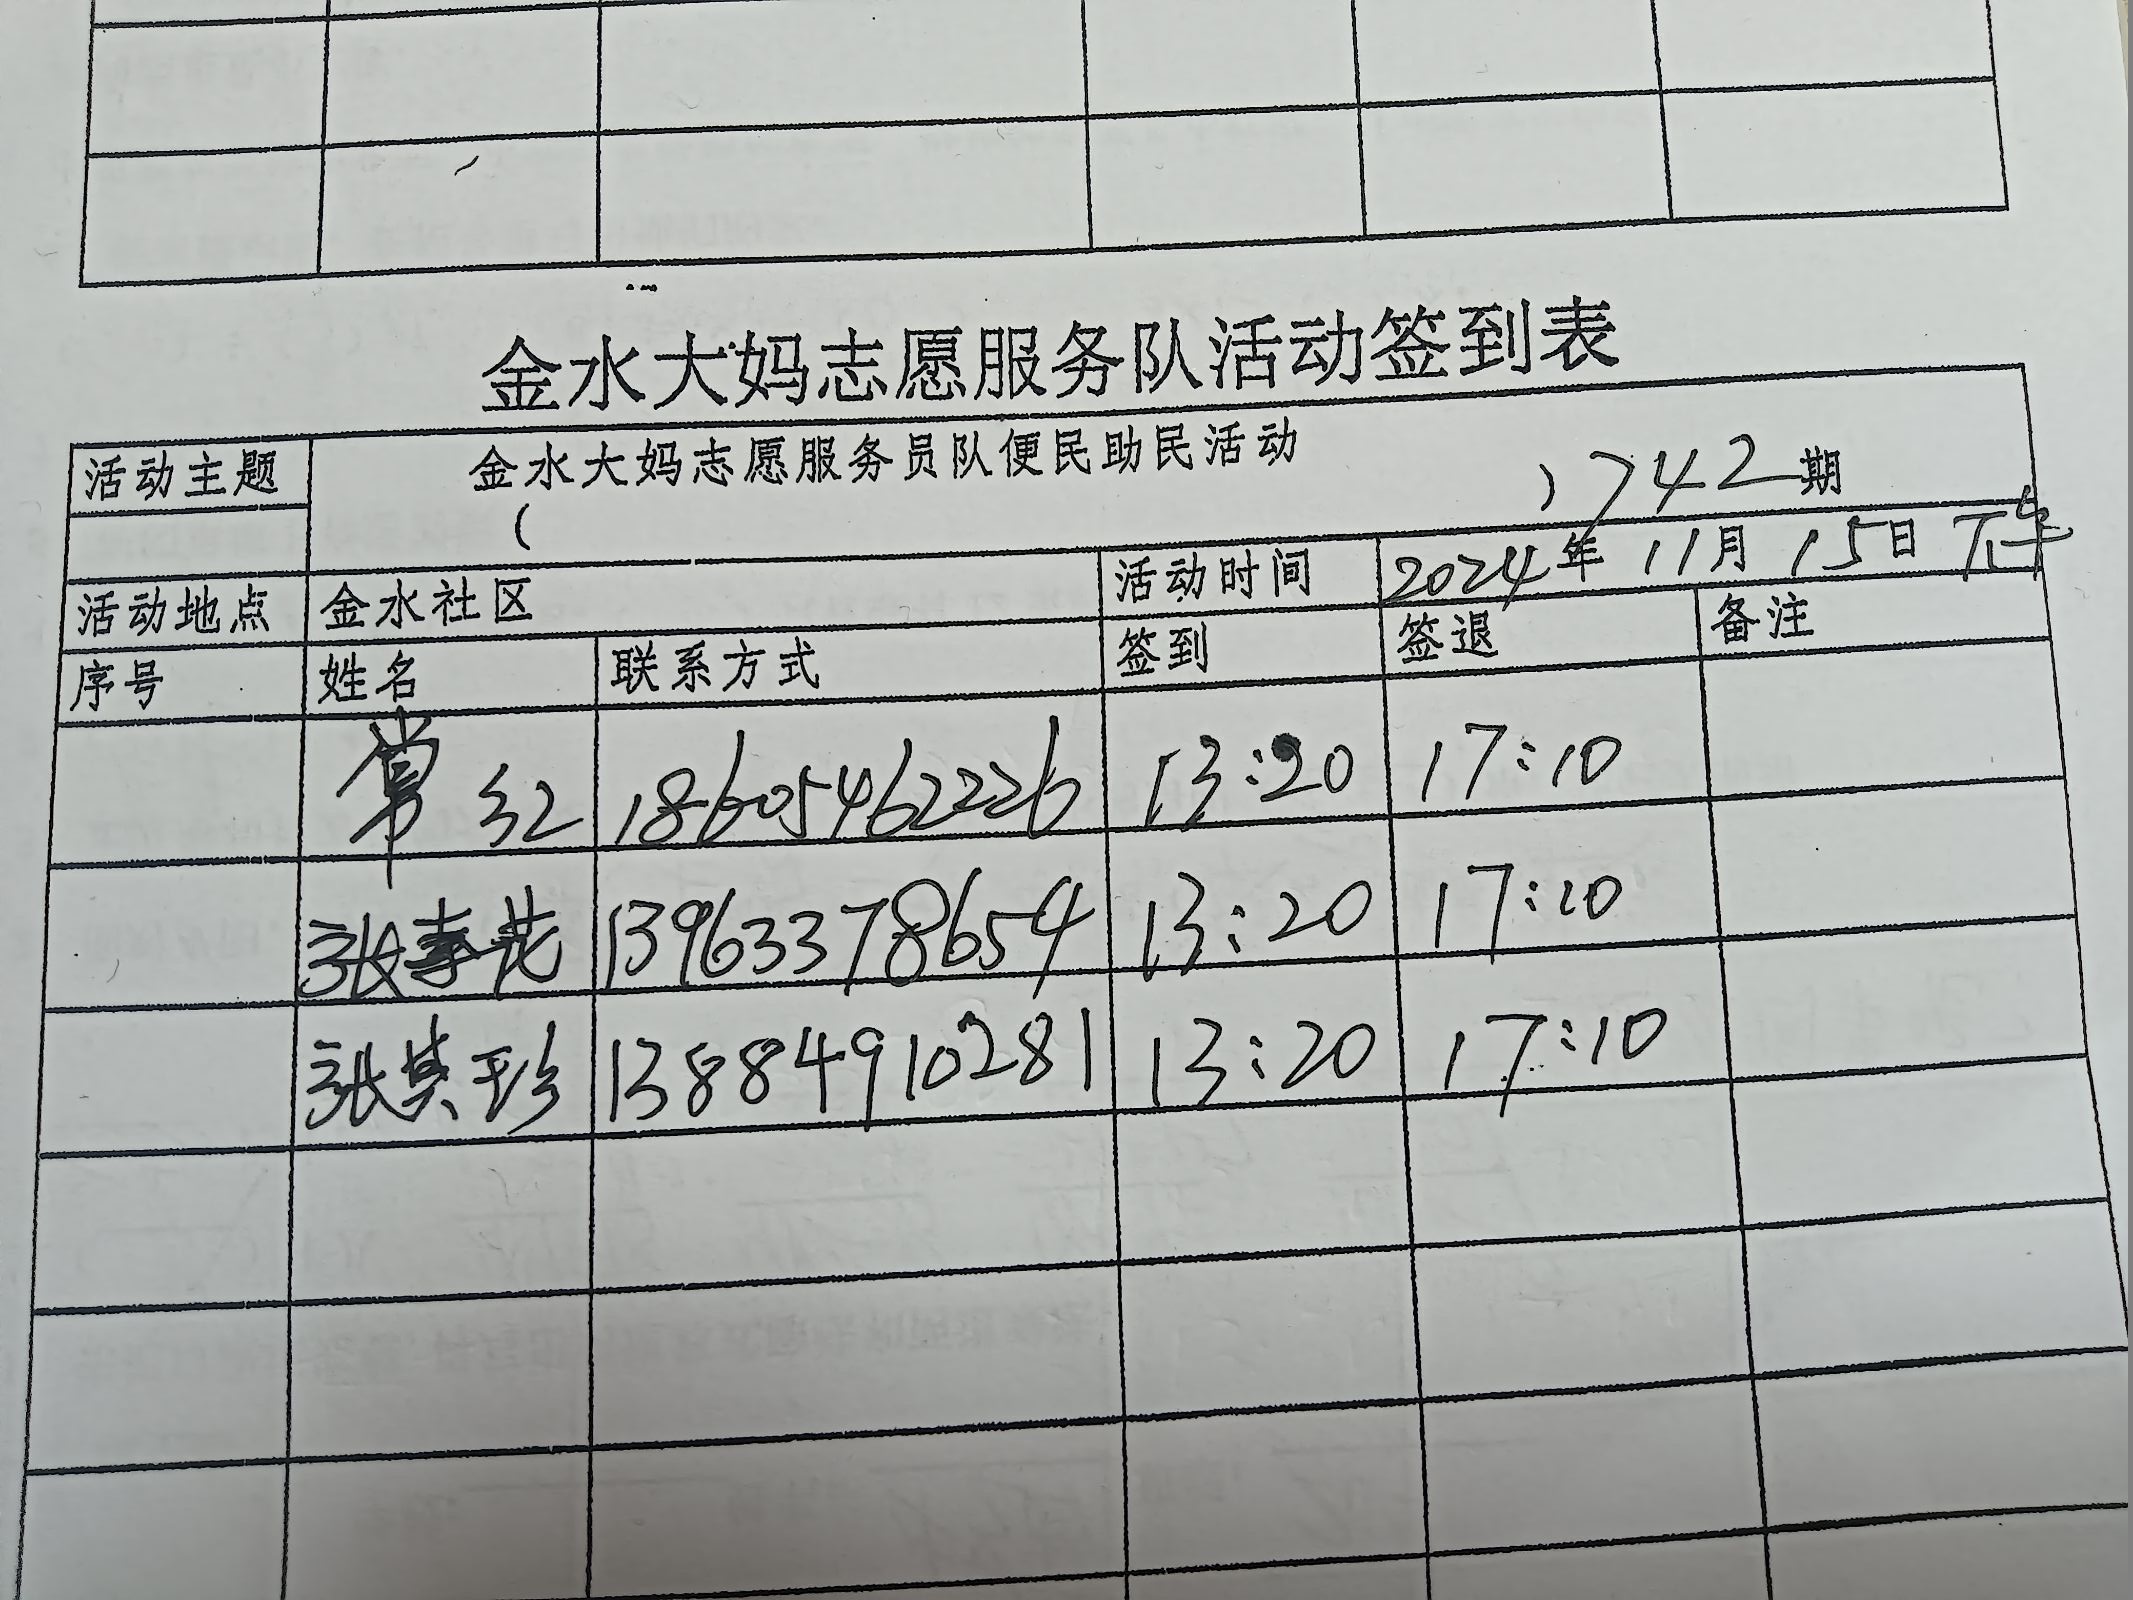 金水大妈志愿服务队活动签到表
活动主题 金水大妈志愿服务员队便民助民活动
( ) 742期
活动地点 金水社区 活动时间 2024年11月15日下午
序号 姓名 联系方式 签到 签退 备注
常红 18605462226 13:20 17:10
张春花 13963378654 13:20 17:10
张其珍 13884910281 13:20 17:10